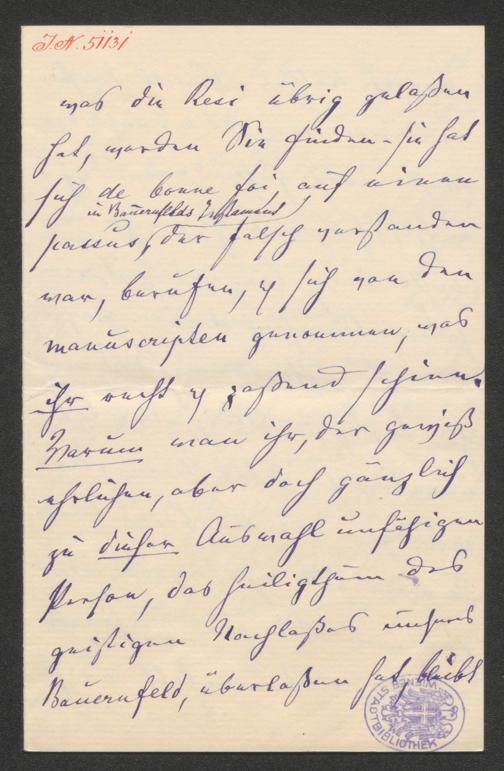 J.N. 51131
was die Resi übrig gelaßen
hat, werden Sie finden - sie hat
sich de bonne foi, auf einen
in Bauernfelds Testament
passus, der falsch verstanden
war, berufen, u sich von den
manuscripten genommen, was
ihr recht u paßend schien.
Warum man ihr, der gewiß
ehrlichen, aber doch gänzlich
zu dieser Auswahl unfähigen
Person, das Heiligthum des
geistigen Nachlaßes unseres
Bauernfeld, überlaßen hat, bleibt
WIENER STADTBIBLIOTHEK